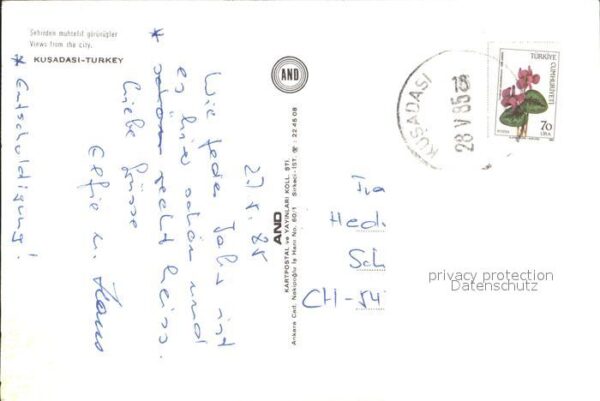 Şehirden muhtelif görünüşler
Views from the city.
KUŞADASI-TURKEY
AND
27.5.85
Wie jedes Jahr ist
es hier schön und
* schön recht heiss.
Liebe Grüsse
Elfie u. Hans
* Entschuldigung!
AND
KARTPOSTAL ve YAYINLARI KOLL. ŞTİ.
Ankara Cad. Nakoğlu İş Hanı No. 60/1 Sirkeci-İST. ☎: 22 45 08
KUŞADASI
28 V 85
TÜRKİYE
CUMHURİYETİ
70
LİRA
Hed
Sch
CH-54
privacy protection
Datenschutz